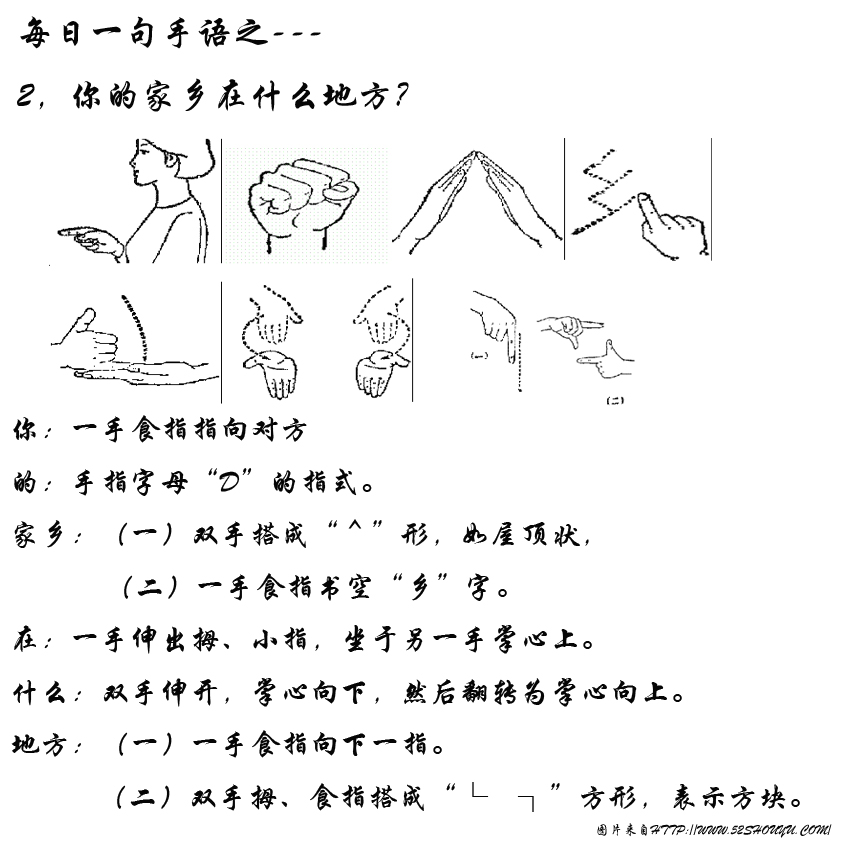 每日一句手语之---
2，你的家乡在什么地方？
（一）
（二）
你：一手食指指向对方
的：手指字母“D”的指式。
家乡：（一）双手搭成“^”形，如屋顶状，
（二）一手食指书空“乡”字。
在：一手伸出拇、小指，坐于另一手掌心上。
什么：双手伸开，掌心向下，然后翻转为掌心向上。
地方：（一）一手食指向下一指。
（二）双手拇、食指搭成“└ ┐”方形，表示方块。
图片来自HTTP://WWW.52SHOUYU.COM/